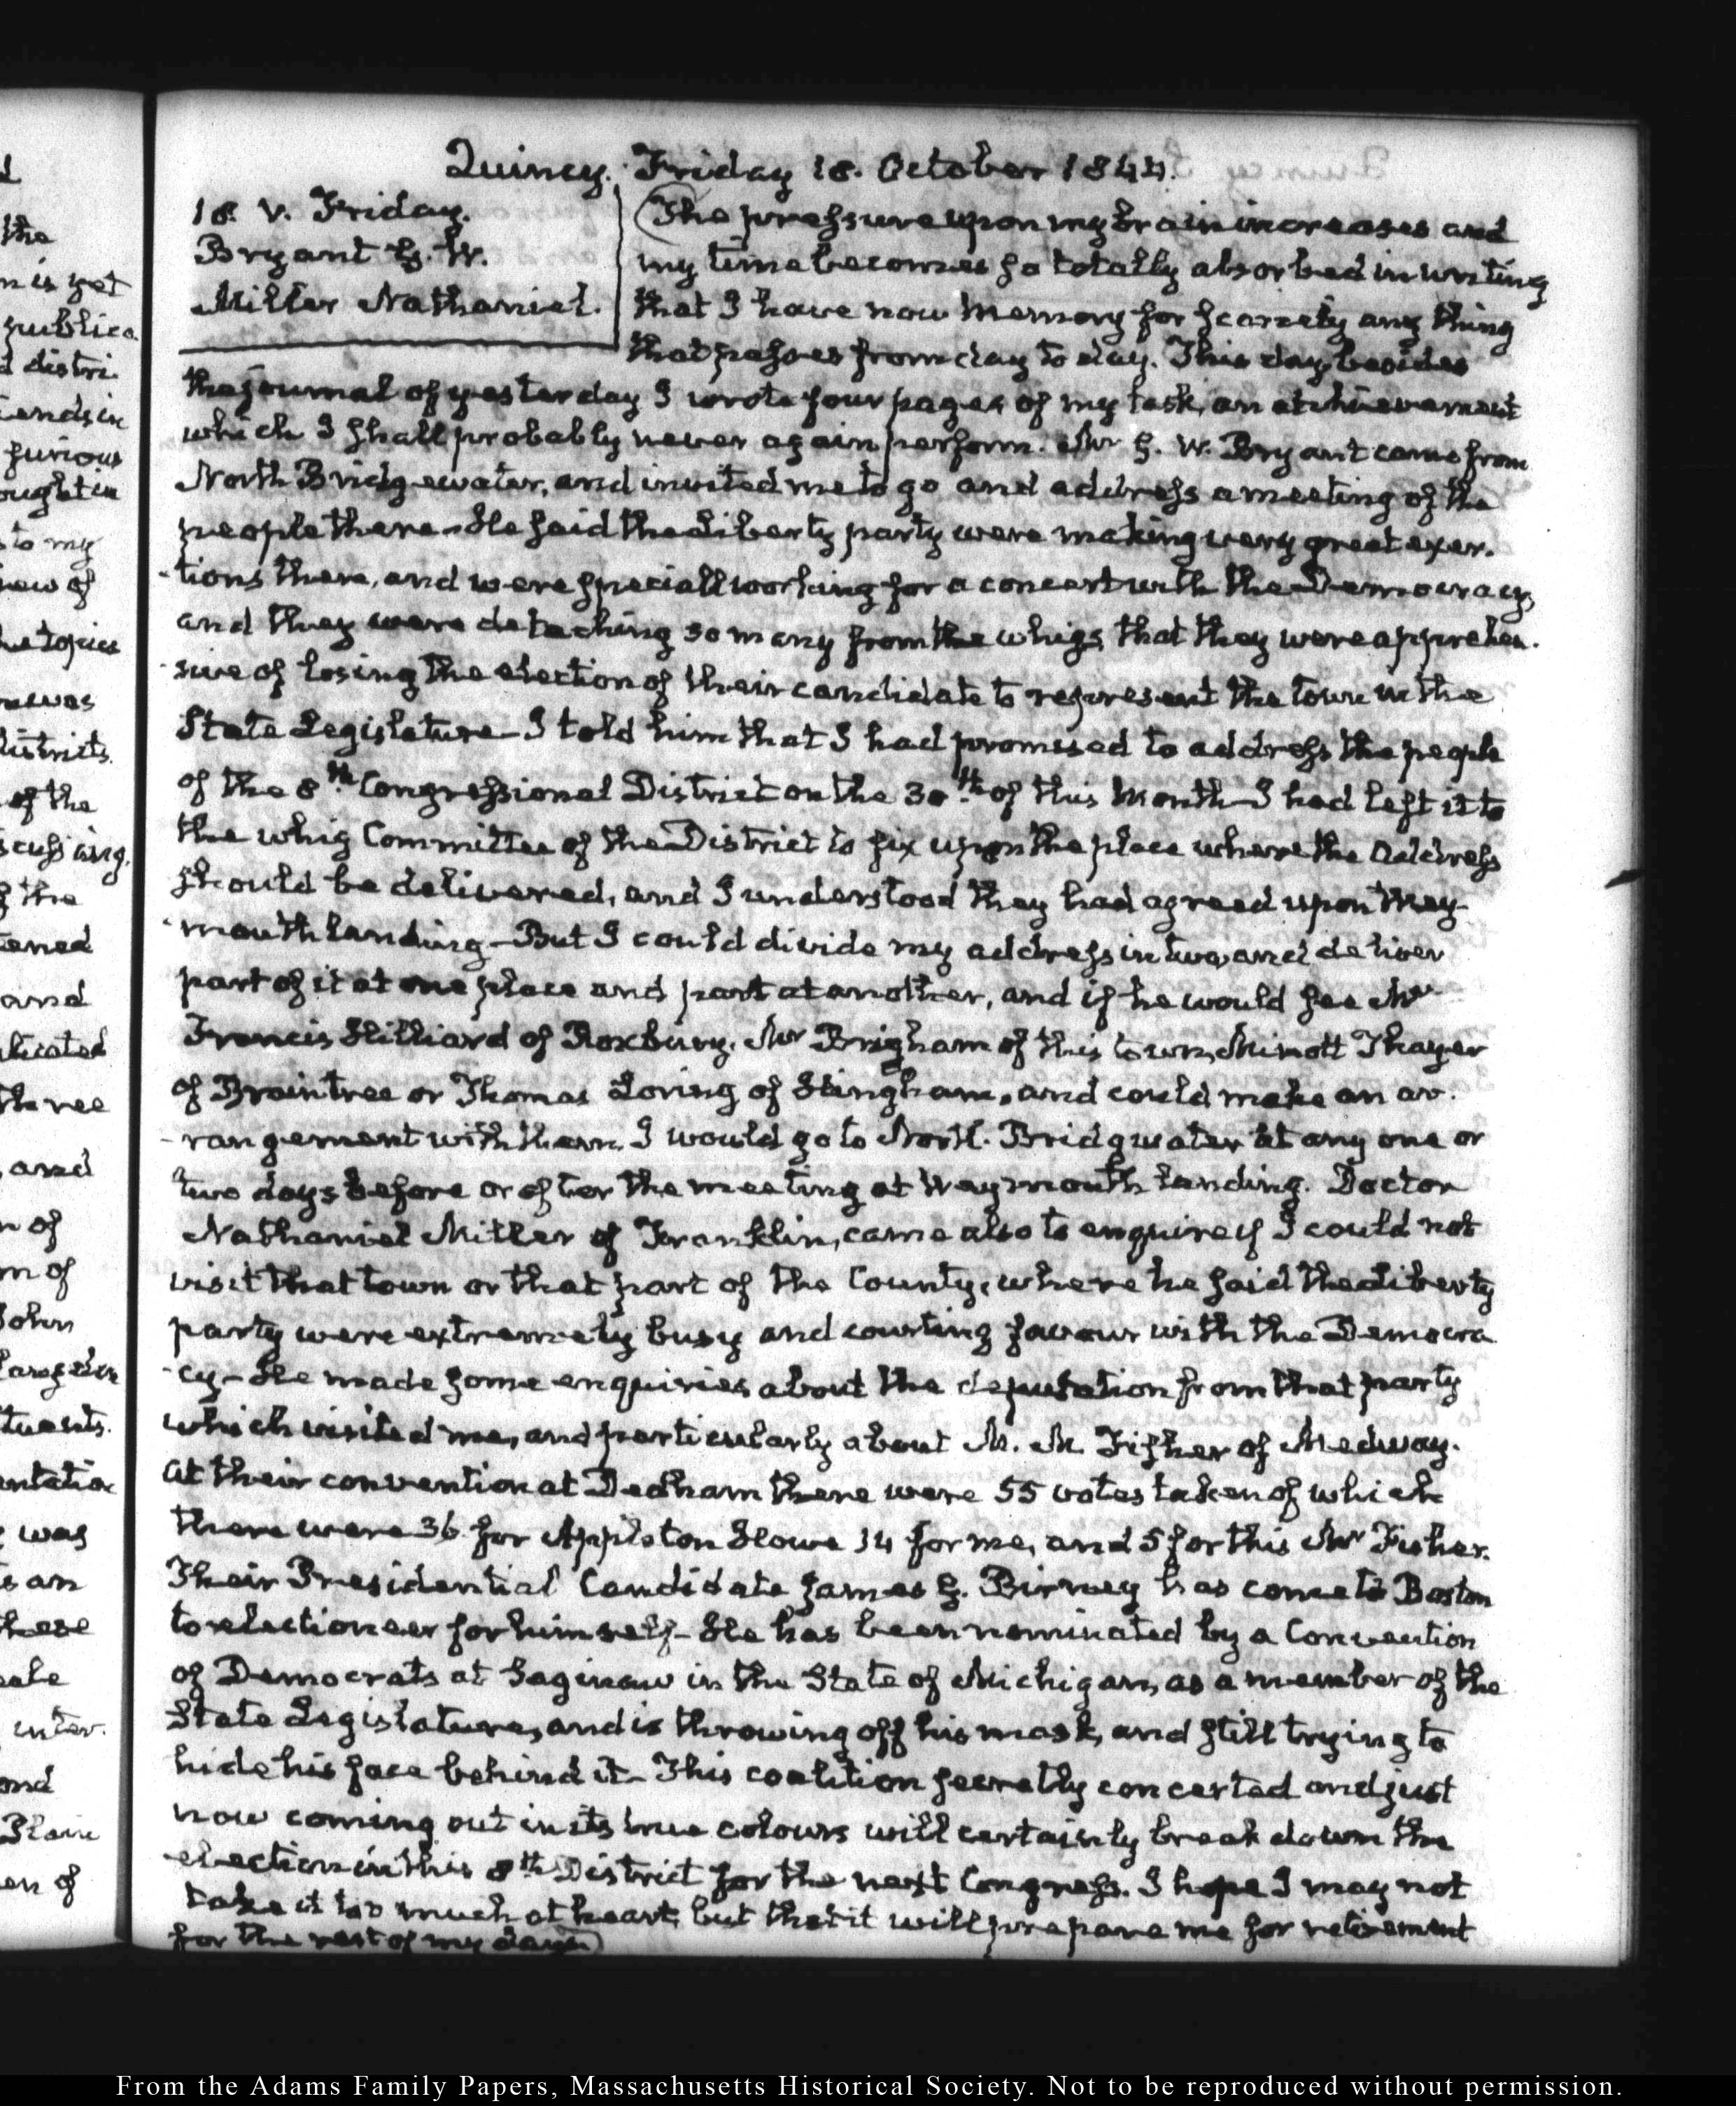 Quincy. Friday 18. October 1844.
18. V. Friday.
Bryant G. W.
Miller Nathaniel.
(The pressure upon my brain increases and
my time becomes so totally absorbed in writing
that I have now memory for scarcely any thing
that passes from day to day. This day besides
the journal of yesterday I wrote four pages of my task, an atchievement
which I shall probably never again perform. Mr G. W. Bryant came from
North Bridgewater, and invited me to go and address a meeting of the
people there – He said the Liberty party were making very great exer-
-tions there, and were speciall working for a concert with the Democracy,
and they were detaching so many from the whigs that they were apprehen-
-sive of losing the election of their candidate to represent the town in the
State Legislature – I told him that I had promised to address the people
of the 8th. Congressional District on the 30th. of this Month – I had left it to
the whig Committee of the District to fix upon the place where the Address
should be delivered, and I understood they had agreed upon Wey-
-mouth landing – But I could divide my address in two, and deliver
part of it at one place and part at another, and if he would see Mr
Francis Hilliard of Roxbury, Mr Brigham of this town, Minott Thayer
of Braintree or Thomas Loring of Hingham, and could make an ar-
-rangement with them, I would go to North Bridgwater at any one or
two days before or after the meeting at Weymouth landing. Doctor
Nathaniel Miller of Franklin, came also to enquire if I could not
visit that town or that part of the County, where he said the Liberty
party were extremely busy and courting favour with the Democra-
-cy – He made some enquiries about the deputation from that party
which visited me, and particularly about M. M. Fisher of Medway.
At their convention at Dedham there were 55 votes taken of which
there were 36 for Appleton Howe 14 for me, and 5 for this Mr Fisher.
Their Presidential Candidate James G. Birney has come to Boston
to electioneer for himself – He has been nominated by a Convention
of Democrats at Saginaw in the State of Michigan, as a member of the
State Legislature, and is throwing off his mask, and still trying to
hide his face behind it – This coalition secretly concerted and just
now coming out in its true colours will certainly break down the
election in this 8th District for the next Congress. I hope I may not
take it too much at heart, but that it will prepare me for retirement
for the rest of my days)
From the Adams Family Papers, Massachusetts Historical Society. Not to be reproduced without permission.